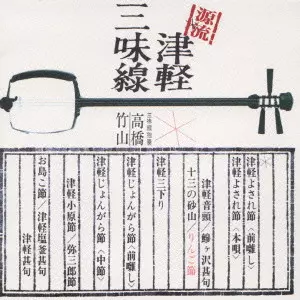 源流
津軽
三味線
三味線独奏
高橋
竹山
津軽よされ節〈本唄〉
津軽よされ節〈前囃し〉
津軽音頭/鰺ヶ沢甚句
十三の砂山/りんご節
津軽三下り
津軽じょんがら節〈前囃し〉
津軽じょんがら節〈中節〉
津軽小原節/弥三郎節
お島こ節/津軽塩釜甚句
津軽甚句